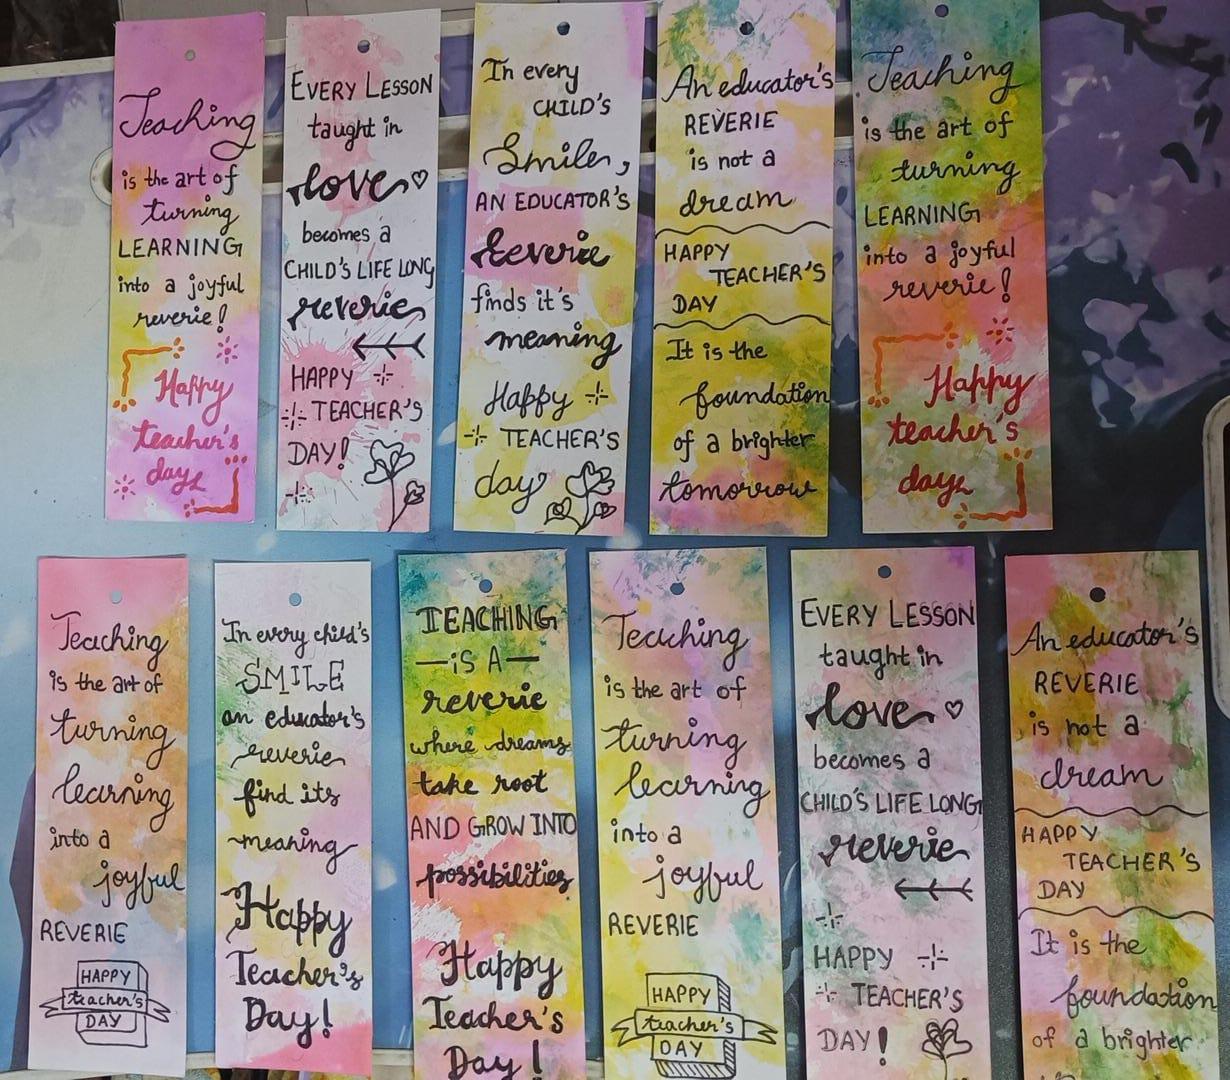 Teaching
is the art of
turning
LEARNING
into a joyful
reverie!
Happy
teacher's
day
EVERY LESSON
taught in
love
becomes a
CHILD'S LIFE LONG
reverie
HAPPY
TEACHER'S
DAY!
In every
CHILD'S
Smile,
AN EDUCATOR'S
Reverie
finds it's
meaning
Happy
TEACHER'S
day
An educator's
REVERIE
is not a
dream
HAPPY
TEACHER'S
DAY
It is the
foundation
of a brighter
tomorrow
Teaching
is the art of
turning
LEARNING
into a joyful
reverie!
Happy
teacher's
day
Teaching
is the art of
turning
learning
into a
joyful
REVERIE
HAPPY
teacher's
DAY
In every child's
SMILE
an educator's
reverie
find its
meaning
Happy
Teacher's
Day!
TEACHING
—is A—
reverie
where dreams
take root
AND GROW INTO
possibilities
Happy
Teacher's
Day!
Teaching
is the art of
turning
learning
into a
joyful
REVERIE
HAPPY
teacher's
DAY
EVERY LESSON
taught in
love
becomes a
CHILD'S LIFE LONG
reverie
HAPPY
TEACHER'S
DAY!
An educator's
REVERIE
is not a
dream
HAPPY
TEACHER'S
DAY
It is the
foundation
of a brighter